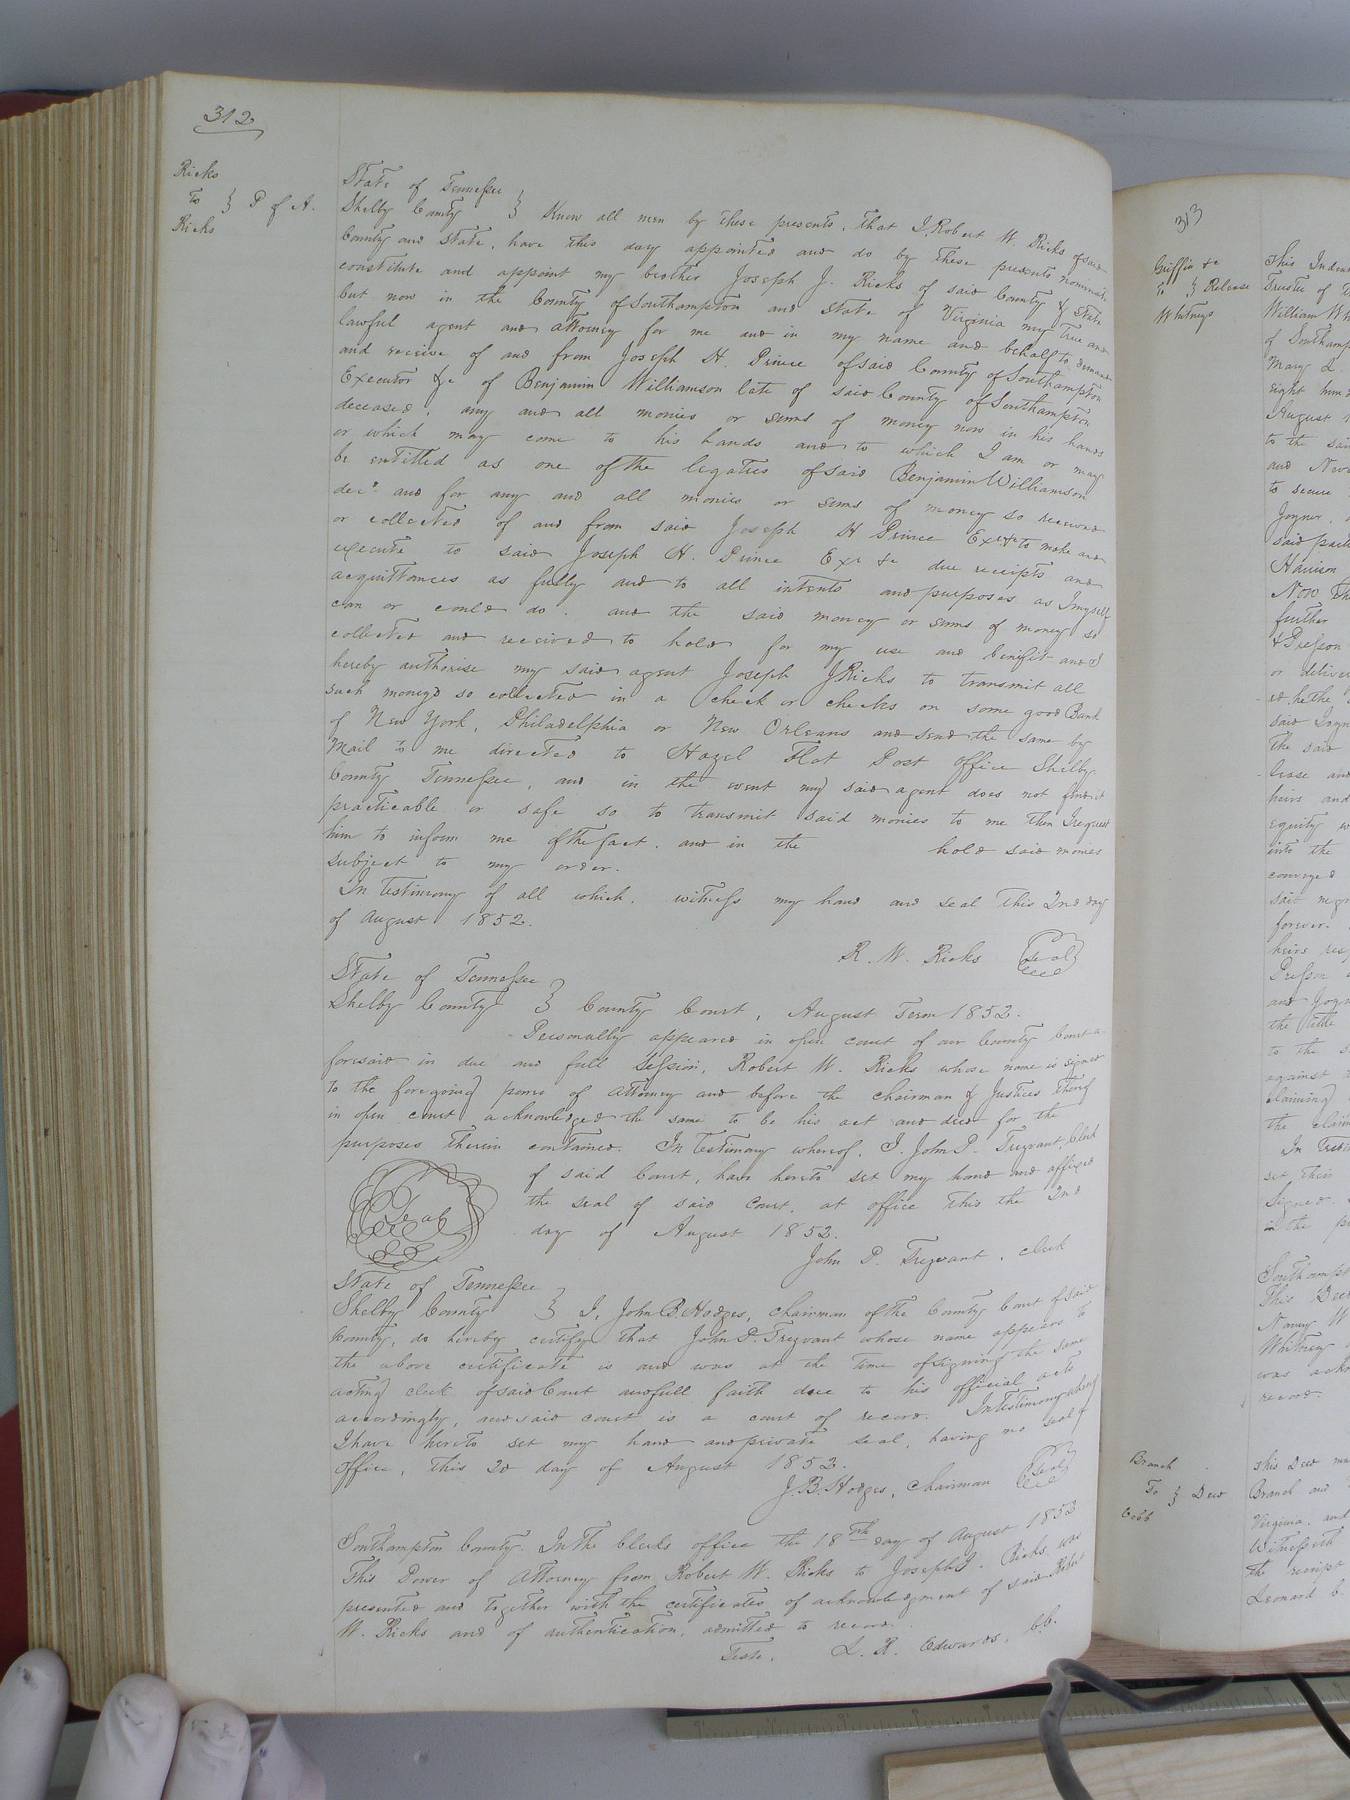 312
Ricks
To } P of A.
Ricks
State of Tennessee }
Shelby County } Know all men by these presents, that I, Robert W. Ricks of said
County and State, have this day appointed and do by these presents nominate
constitute and appoint my brother Joseph J. Ricks of said County & State
but now in the County of Southampton and State of Virginia my true and
lawful agent and attorney for me and in my name and behalf to demand
and receive of and from Joseph H. Prince of said County of Southampton
Executor &c of Benjamin Williamson late of said County of Southampton
deceased, any and all monies or sums of money now in his hands
or which may come to his hands and to which I am or may
be entitled as one of the legatees of said Benjamin Williamson
decd. and for any and all monies or sums of money so received
or collected of and from said Joseph H Prince Exr &c to make and
execute to said Joseph H. Prince Exr &c due receipts and
acquittances as fully and to all intents and purposes as I myself
can or could do. and the said money or sums of money so
collected and received to hold for my use and benifit and I
hereby authorise my said agent Joseph J Ricks to transmit all
such money so collected in a check or checks on some good Bank
of New York, Philadelphia or New Orleans and send the same by
Mail to me directed to Hazel Flat Post Office Shelby
County Tennessee, and in the event my said agent does not find it
practicable or safe so to transmit said monies to me then I request
him to inform me of the fact, and in the hold said monies
subject to my order.
In testimony of all which, witness my hand and seal this 2nd day
of August 1852.
R. W. Ricks Seal
State of Tennessee }
Shelby County } County Court, August Term 1852.
Personally appeared in open court of our County Court a-
foresaid in due and full Session, Robert W. Ricks whose name is signed
to the foregoing power of attorney and before the chairman & Justices thereof
in open court acknowledged the same to be his act and deed for the
purposes therein contained. In testimony whereof, I. John P. Trezvant, Clerk
of said Court, have hereto set my hand and affixed
the seal of said Court, at office this the 2nd
day of August 1852.
Seal
John P. Trezvant, clerk
State of Tennessee }
Shelby County } I, John B. Hodges, chairman of the County Court of said
County, do hereby certify that John P. Trezvant whose name appears to
the above certificate is and was at the time of signing the same
acting clerk of said Court and full faith due to his official acts
accordingly, and said court is a court of record. In testimony whereof
I have hereto set my hand and private seal, having no seal of
office, this 2d day of August 1852.
J. B. Hodges, Chairman Seal
Southampton County. In the clerks office the 18th day of August 1852
This Power of Attorney from Robert W. Ricks to Joseph J. Ricks was
presented and together with the certificates of acknowledgment of said Robert
W. Ricks and of authentication, admitted to record.
Teste, L. R. Edwards, C.C.
313
Griffin &c
To } Release
Whitneys
This Inden
Trustee of
William Wh
of Southamp
Mary L.
right hund
August
to the said
and
to secure
Joyner,
said
Harrison
Now
further
& Presson
or deliver
said Joyn
the said
lease and
heirs and
equity
into the
conveyed
said
forever.
heirs
Presson
and Joyn
the title
to the
against
claiming
the claim
In Testi
set this
Signed,
in the p
Southampt
This Deed
Nancy W
Whitney
was ackn
record.
Branch
To } Deed
Cobb
This Deed ma
Branch and
Virginia, and
Witnesseth
the receipt
Leonard C.